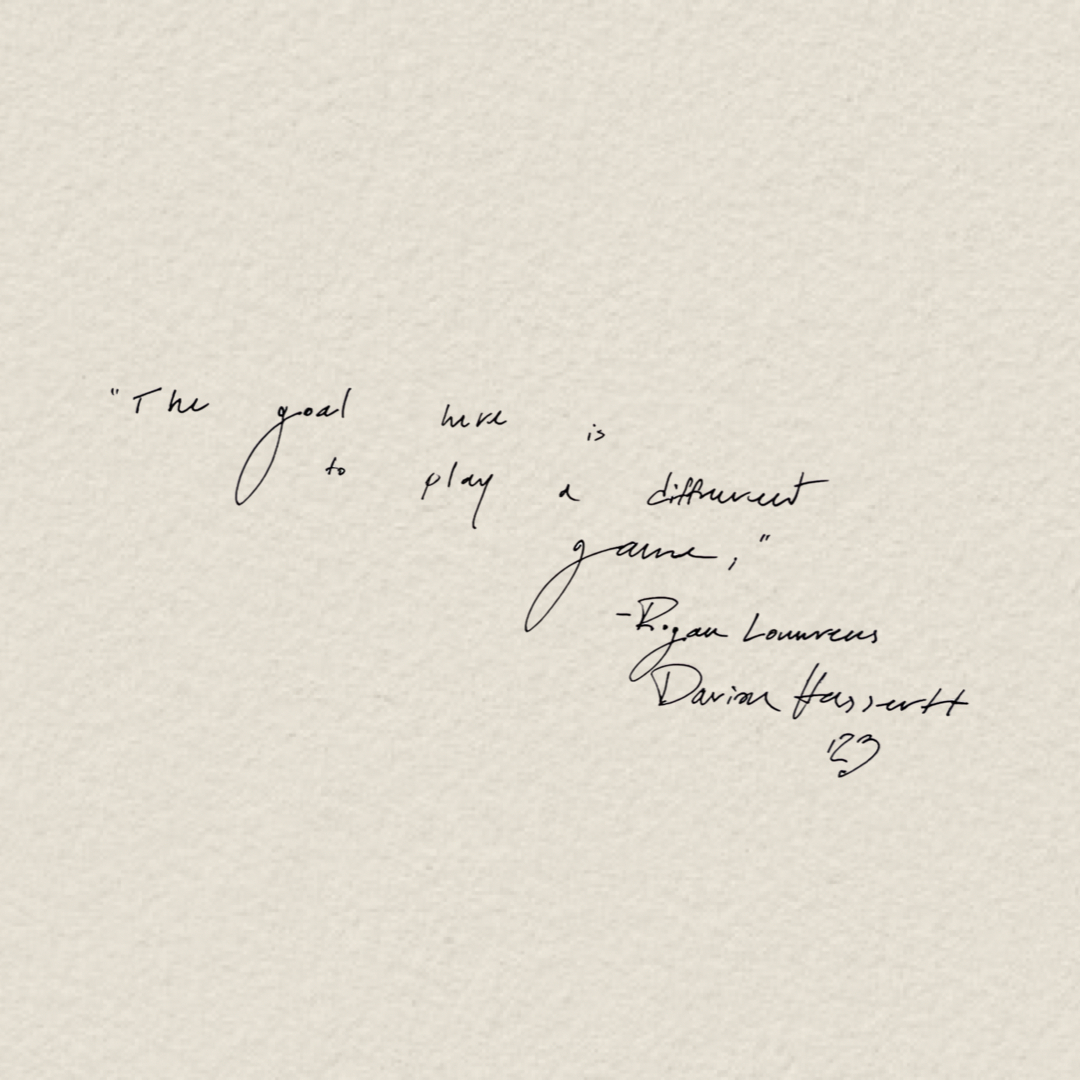 "The goal here is
to play a different
game,"
-Rogan Louwrens
Darian Hassertt
'23